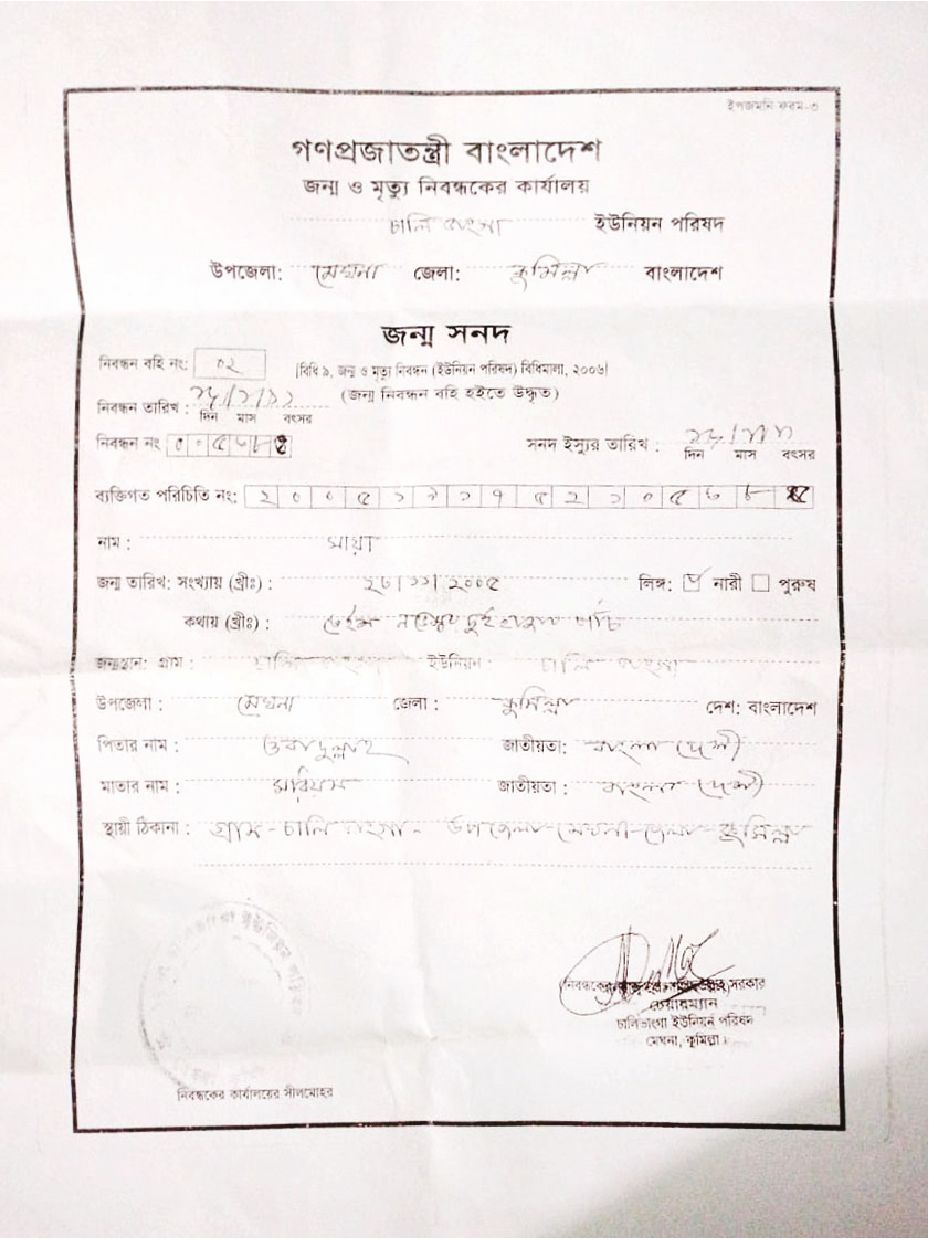 ইপজমনি ফরম-৩
গণপ্রজাতন্ত্রী বাংলাদেশ
জন্ম ও মৃত্যু নিবন্ধকের কার্যালয়
চালিভাংগা ইউনিয়ন পরিষদ
উপজেলা: মেঘনা জেলা: কুমিল্লা বাংলাদেশ
জন্ম সনদ
নিবন্ধন বহি নং: ০২
[বিধি ৯, জন্ম ও মৃত্যু নিবন্ধন (ইউনিয়ন পরিষদ) বিধিমালা, ২০০৬]
(জন্ম নিবন্ধন বহি হইতে উদ্ধৃত)
নিবন্ধন তারিখ :
দিন মাস বৎসর
নিবন্ধন নং
সনদ ইস্যুর তারিখ :
দিন মাস বৎসর
ব্যক্তিগত পরিচিতি নং:
নাম : মায়া
জন্ম তারিখ: সংখ্যায় (খ্রীঃ) : ২৮/১১/২০০৫ লিঙ্গ: নারী পুরুষ
কথায় (খ্রীঃ) : নভেম্বর দুই হাজার পাঁচ
জন্মস্থান: গ্রাম : চালিভাংগা ইউনিয়ন : চালিভাংগা
উপজেলা : মেঘনা জেলা : কুমিল্লা দেশ: বাংলাদেশ
পিতার নাম : ওবাদুল্লাহ জাতীয়তা: বাংলাদেশী
মাতার নাম : মরিয়ম জাতীয়তা : বাংলাদেশী
স্থায়ী ঠিকানা : গ্রাম-চালিভাংগা- উপজেলা-মেঘনা-জেলা-কুমিল্লা
সরকার
চেয়ারম্যান
চালিভাংগা ইউনিয়ন পরিষদ
মেঘনা, কুমিল্লা।
নিবন্ধকের কার্যালয়ের সীলমোহর